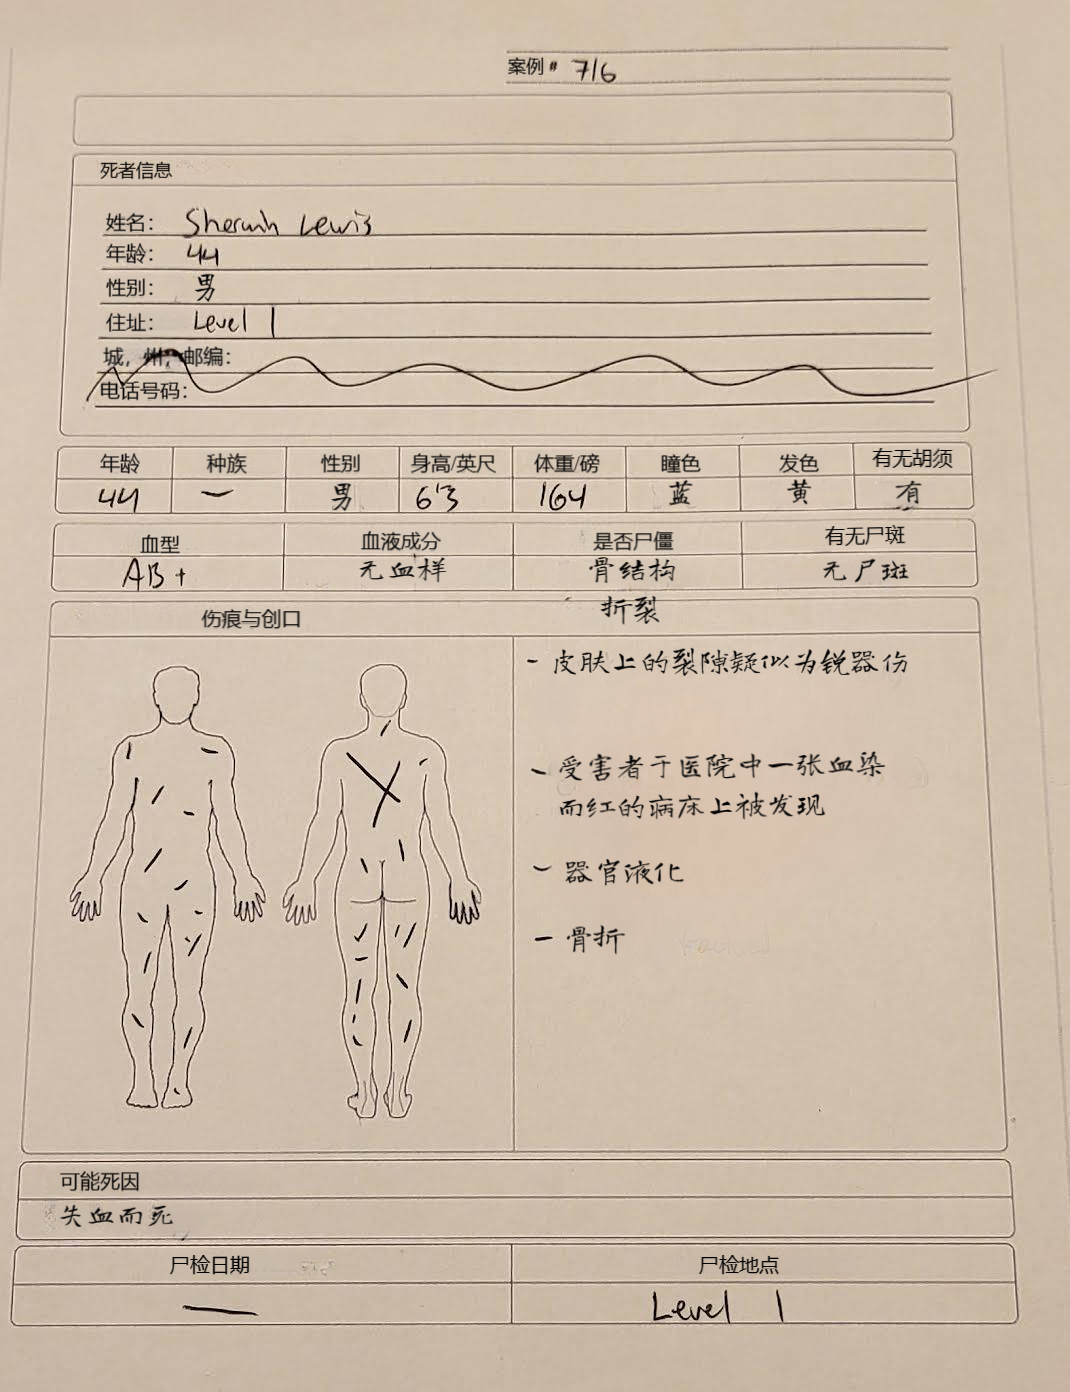 案例# 716
死者信息
姓名: Sherwin Lewis
年龄: 44
性别: 男
住址: Level 1
城, 州, 邮编:
电话号码:
年龄 种族 性别 身高/英尺 体重/磅 瞳色 发色 有无胡须
44 一 男 6'3 164 蓝 黄 有
血型 血液成分 是否尸僵 有无尸斑
AB+ 无血样 骨结构 无尸斑
折裂
伤痕与创口
- 皮肤上的裂隙疑似为锐器伤
- 受害者于医院中一张血染
而红的病床上被发现
- 器官液化
- 骨折
可能死因
失血而死
尸检日期 尸检地点
— Level 1